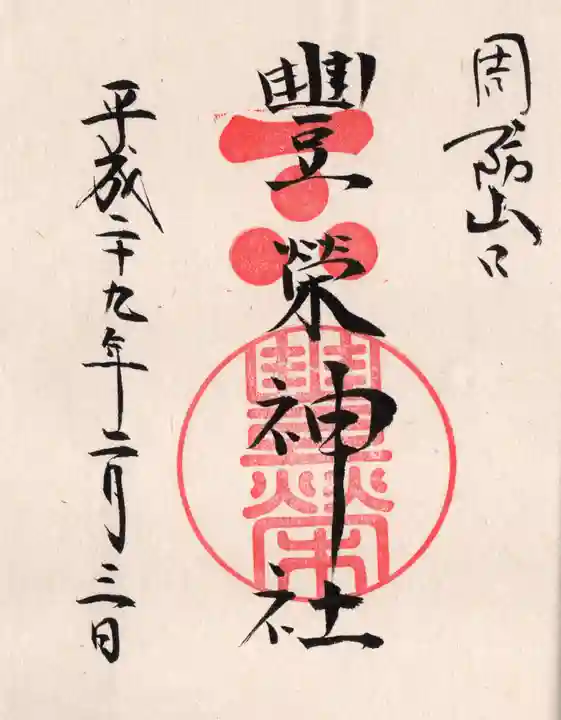 周防山口
豐榮神社
豐榮
平成二十九年二月三日